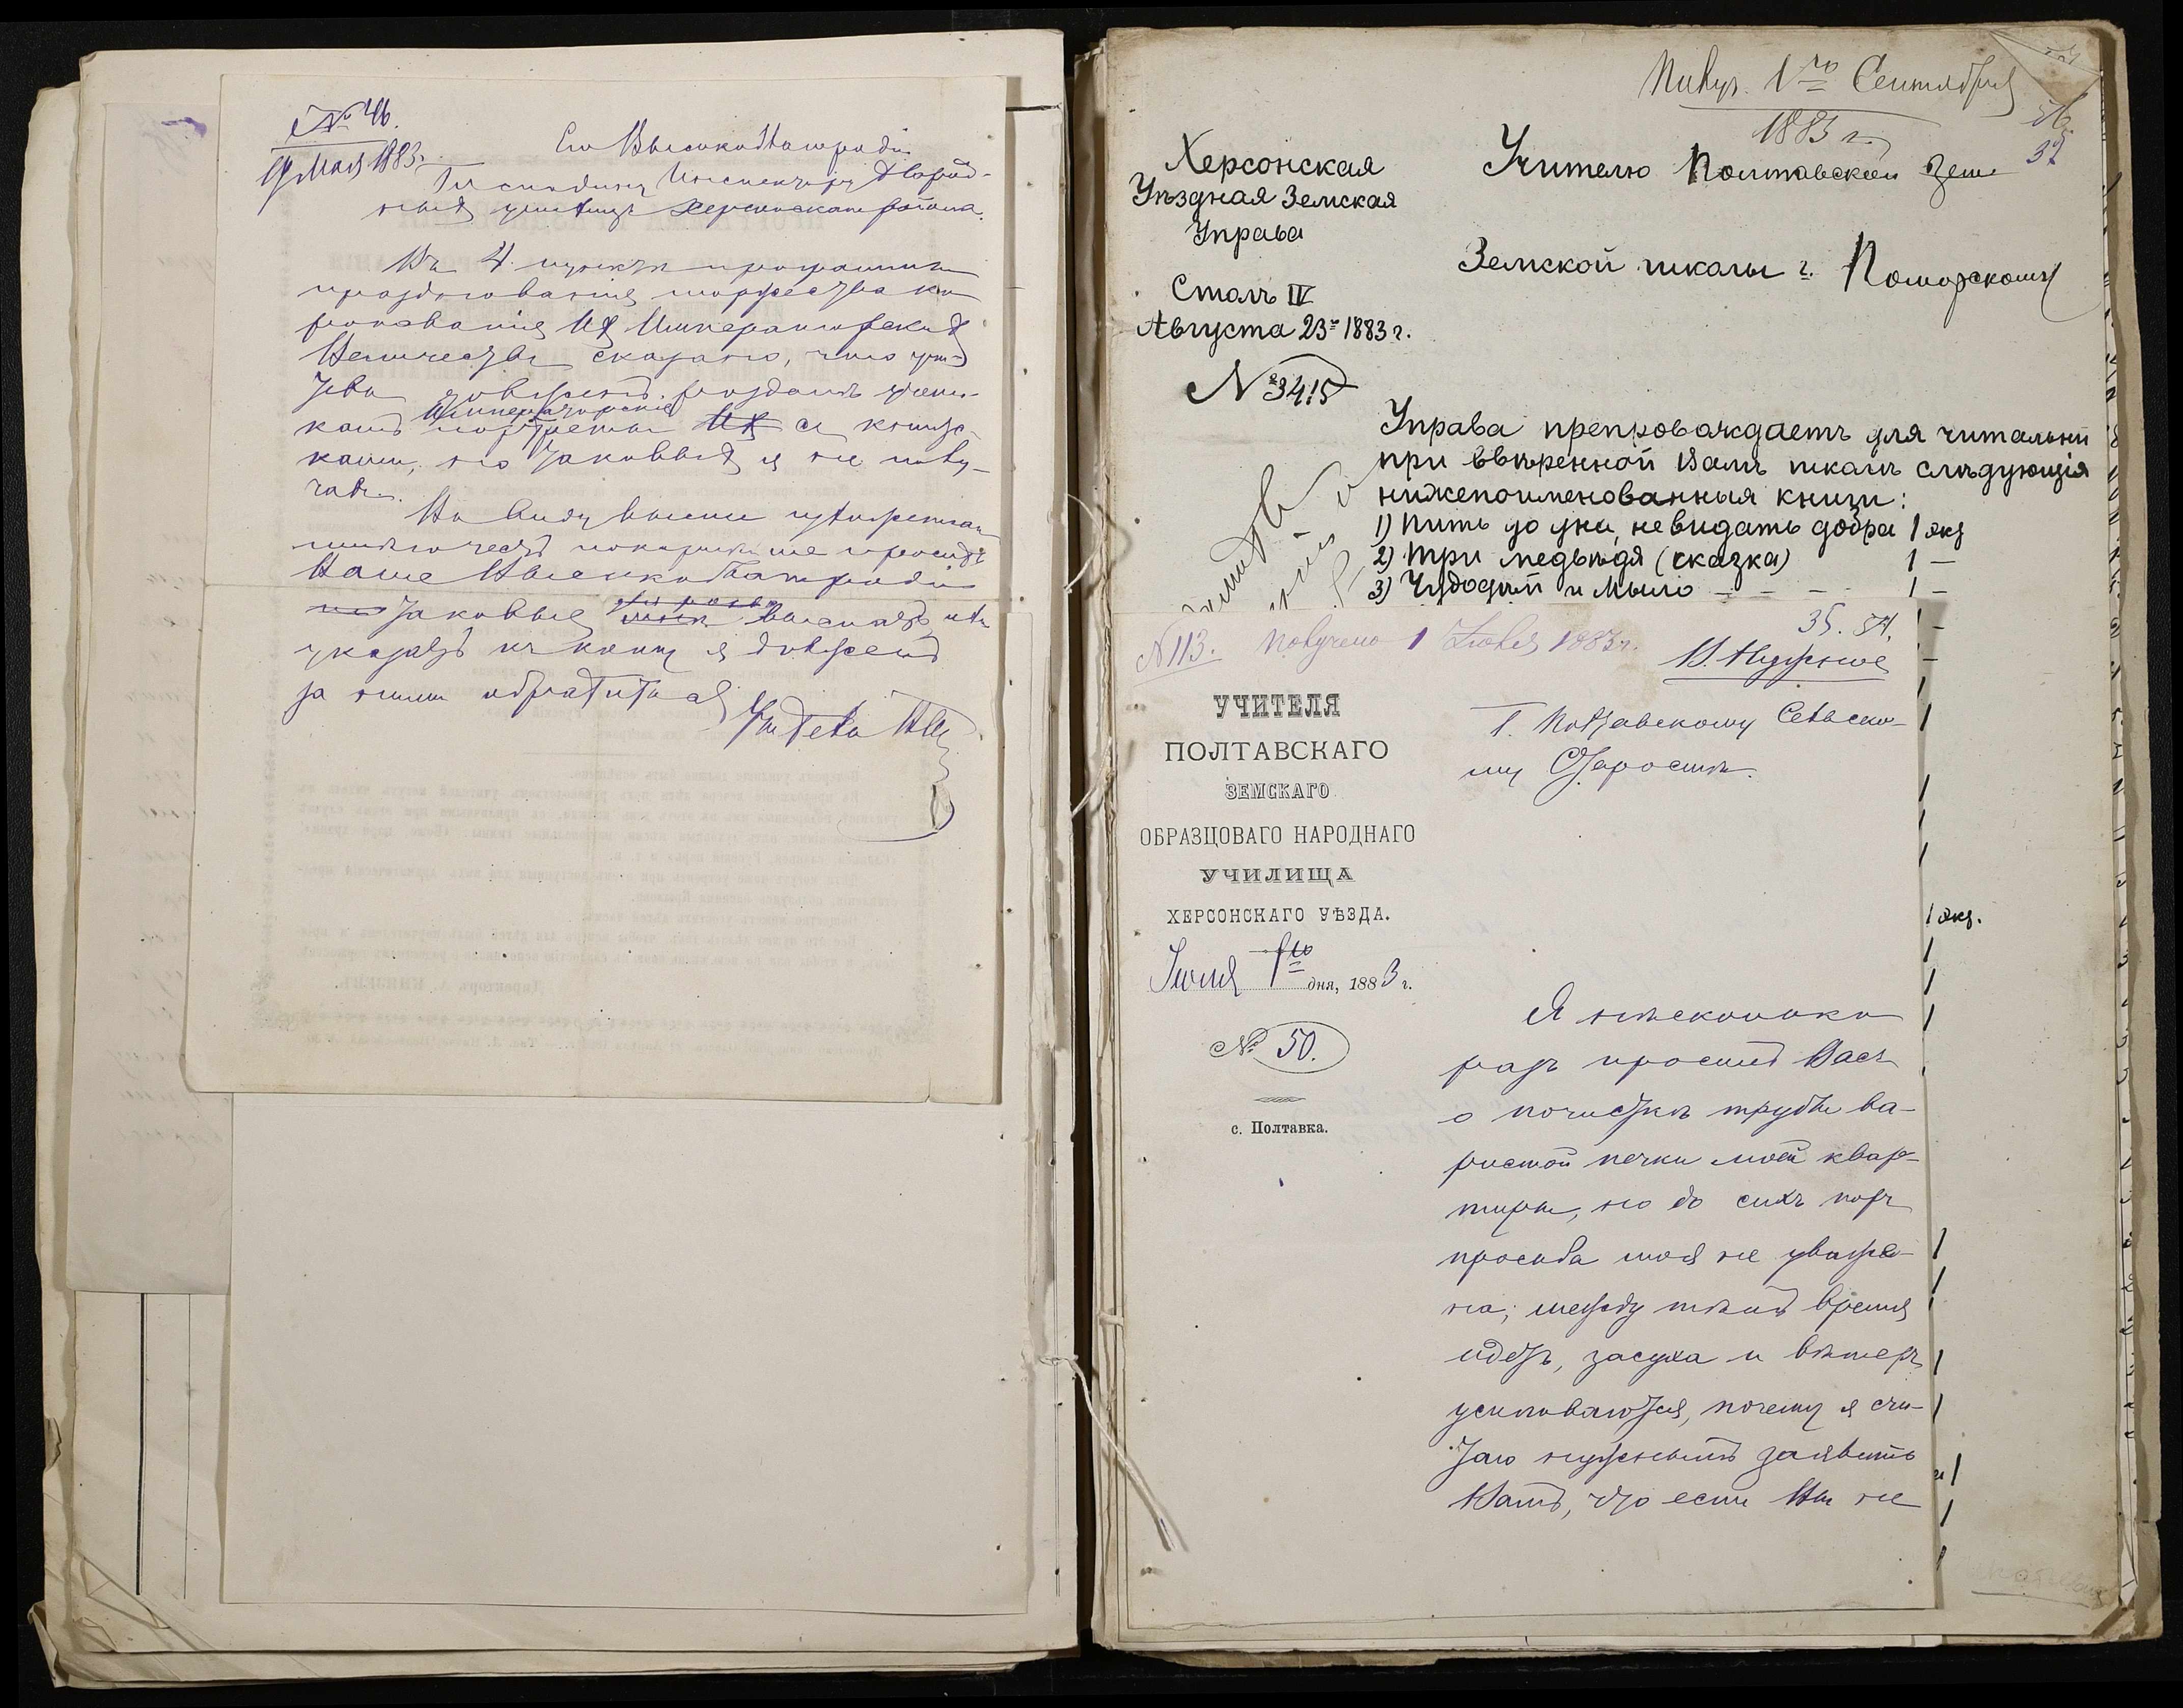 № 46.
19 Мая 1883 г.
Его Высокоблагородію
Господину Инспектору Народ-
ныхъ училищъ Херсонскаго района.
Въ 4 пунктѣ программы
празднованія торжества ко
ронованія Их Императорскихъ
Величествъ сказано, что учи-
тель долженъ раздать учени-
камъ Императорскіе портреты Их съ книж-
ками, но таковыхъ я не полу-
чалъ.
На виду выше изложеннаго
имѣю честь покорнѣйше просить
Ваше Высокоблагородіе
таковые выслать или
указать къ кому я долженъ
за ними обратиться
Учитель
Получ. 1го Сентября
1883 г.
37
Херсонская
Уѣздная Земская
Управа
Столъ IV
Августа 23 1883 г.
№ 3415
Учителю Полтавской Зем
Земской школы г. Поморскому
Управа препровождаетъ для читальни
при ввѣренной Вамъ школѣ слѣдующія
нижепоименованныя книги:
1) Пить до дна, не видать добра 1 экз
2) Три медвѣдя (сказка) 1 —
3) Чудодѣй и Мыло — — — 1 —
№ 113. Получено 1 Іюня 1883 г.
УЧИТЕЛЯ
ПОЛТАВСКАГО
ЗЕМСКАГО
ОБРАЗЦОВАГО НАРОДНАГО
УЧИЛИЩА
ХЕРСОНСКАГО УѢЗДА.
Іюня 1го дня, 1883 г.
№ 50.
с. Полтавка.
В. Нужное
Г. Полтавскому Сельско-
му Старостѣ.
1 экз.
Я нѣсколько
разъ просилъ Васъ
о почисткѣ трубы ва-
ристой печки моей квар-
тиры, но до сихъ поръ
просьба моя не уваже-
на; между тѣмъ время
идетъ, засуха и вѣтеръ
усиливаются, почему я счи-
таю нужнымъ заявить
Вамъ, что если Вы не